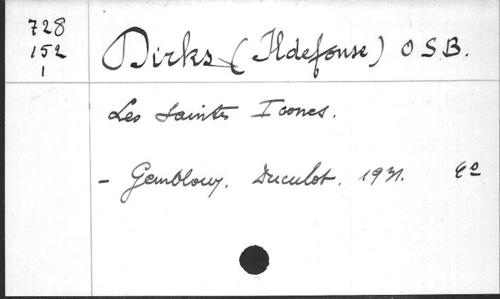 728
152
1
Dirks (Ildefonse) O S B.
Les Saintes Icones.
- Gembloux. Duculot. 1931. 8º